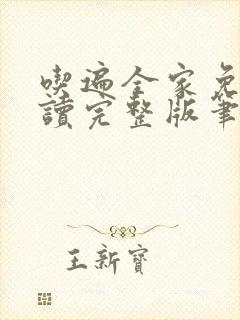 喫遍全家免
讀完整版筆
王新寶